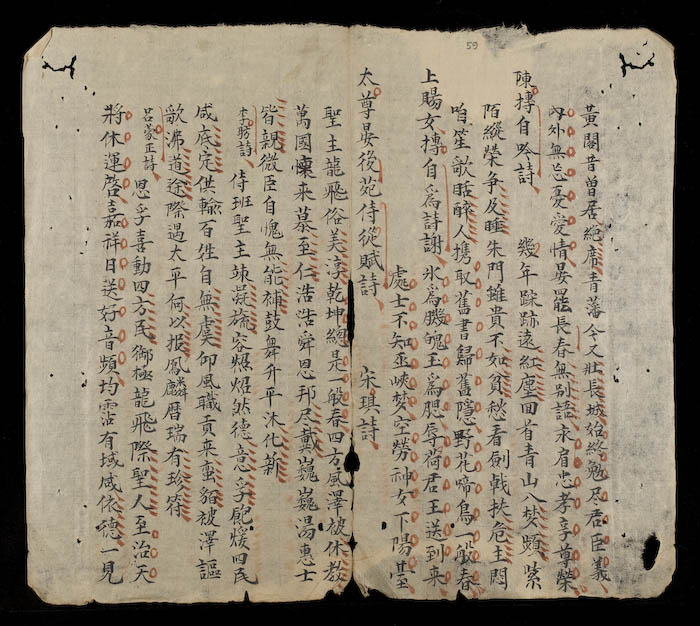 59
黃閣昔曾居絕席青藩今又壯長城始終勉尽君臣義
內外無忘憂愛情晏罷長春無別謡永肩忠孝享尊榮
陳摶自吟詩 幾年踪跡遠紅塵回首青山入梦頻紫
陌縱榮争及睡朱門雖貴不如貧愁看劍戟扶危主悶
听笙歌聒醉人携取舊書歸舊隱野花啼鳥一般春
上賜女摶自爲詩謝 氷爲肌魄玉爲腮辱荷君王送到來
處士不知巫峽梦空勞神女下陽臺
太尊晏後苑侍從賦詩 宋琪詩
聖主龍飛俗美淳乾坤總是一般春四方風澤被休教
萬國懷来慕至仁浩浩舜恩邦尽戴巍巍湯惠士
皆親微臣自愧無能補鼓舞升平沐化新
李昉詩 侍班聖主竦凝旒容熠熠然德意孚飽煖四民
咸底定供輸百姓自無虞仰風職貢来蛮貊被澤謳
歌沸道途際遇太平何以报鳳麟曆瑞有珍符
吕蒙正詩 恩孚喜動四方民御極龍飛際聖人至治天
將休運啓嘉祥日送好音頻均霑有域咸依德一見